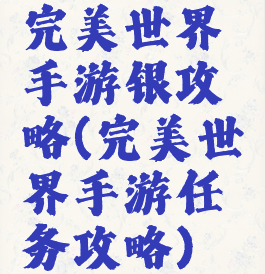 完美世界
手游银攻
略(完美世
界手游任
务攻略)